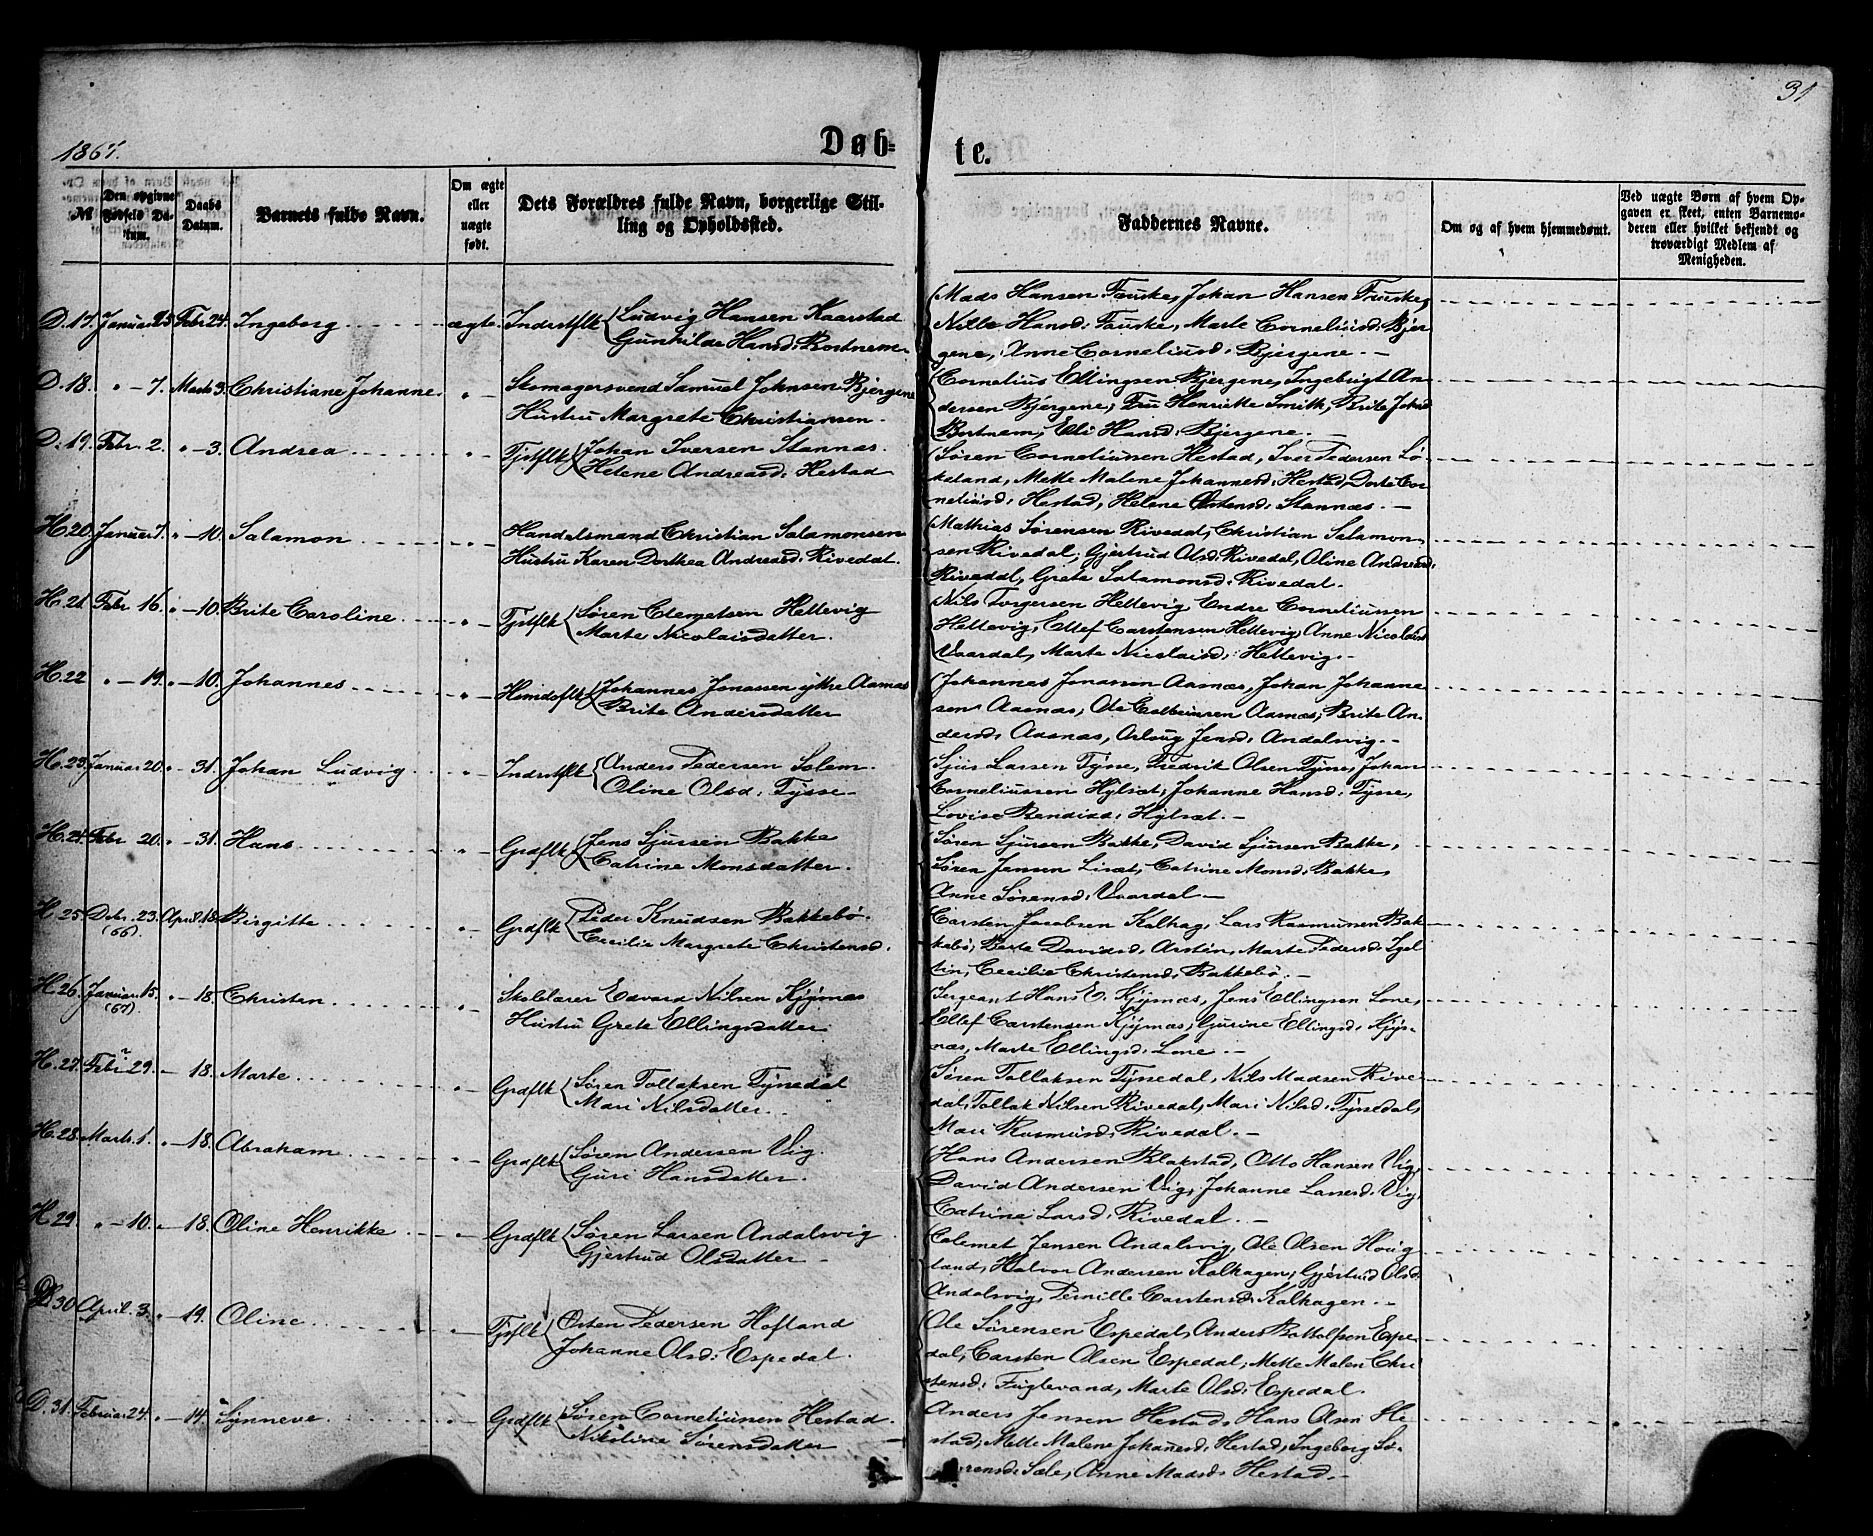 31
1867.
Døb-
te.
№
Den opgivne Fødsels Datum.
Daabs Datum.
Barnets fulde Navn.
Om ægte eller uægte født.
Dets Forældres fulde Navn, borgerlige Stilling og Opholdssted.
Faddernes Navne.
Om og af hvem hjemmedøbt.
Ved uægte Børn af hvem Opgaven er skeet, enten Barnemoderen eller hvilket bekjendt og troværdigt Medlem af Menigheden.
D. 17. Januar 25 Febr 24. Ingeborg ægte. Inderstflk Ludvig Hansen Kaarstad
Gunhilde Hansd: Bortnem.
Mads Hansen Fauske, Johan Hansen Fauske,
Nille Hansd: Fauske, Marte Corneliusd: Bjer
gene, Anne Corneliusd: Bjergene. -
D. 18. " - 7. Marts 3. Christiane Johanne " Skomagersvend Samuel Johnsen Bjergene
Hustru Margrete Christiansen.
Cornelius Ellingsen Bjergene, Ingebrigt An-
dersen Bjergene, Fru Henrikke Smith, Brite Johsd
Bortnem, Eli Hansd: Bjergene. -
D. 19. Febr. 2. " - 3. Andrea " Tjstflk Johan Iversen Stannas
Helene Andreasd: Hestad
Søren Corneliusen Hestad, Iver Pedersen Lø-
keland, Mette Malene Johannesd: Hestad, Dorte Cor-
neliusd: Hestad, Helene Østensd: Stannæs. -
H. 20. Januar 7. " - 10. Salamon " Handelsmand Christian Salamonsen
Hustru Karen Dorthea Andreasd: Rivedal.
Mathias Sørensen Rivedal, Christian Salamon-
sen Rivedal, Gjertrud Olsd: Rivedal, Oline Andreasd:
Rivedal, Grete Salamonsd: Rivedal.
H. 21. Febr 16. " - 10. Brite Caroline " Tjstflk Søren Clemetsen Hellevig
Marte Nicolaisdatter.
Nils Torgersen Hellevig, Endre Corneliussen
Hellevig, Ellef Carstensen Hellevig, Anne Nicolaisd
Vaardal, Marte Nicolaisd: Hellevig. -
H. 22 " - 19. " - 10. Johannes " Huusmdsflk Johannes Jonassen ytre Aasnæs
Brite Andersdatter
Johannes Jonassen Aasnæs, Johan Johanne
sen Aasnæs, Ole Colbeinsen Aasnæs, Brite An
dersd: Aasnæs, Aslaug Jensd: Andalsvig. -
H. 23. Januar 20. " - 31. Johan Ludvig " Indrstflk Anders Pedersen Solem.
Oline Olsd: Tysse -
Sjur Larsen Tysse, Fredrik Olsen Tysse, Johan
Corneliussen Hylsæt, Johanne Hansd: Tysse,
Lovise Bendiksd: Hylsæt. -
H. 24. Febr 20. " - 31. Hans " Grdflk Jens Sjursen Bakke
Catrine Monsdatter.
Søren Sjursen Bakke, David Sjursen Bakke,
Søren Jensen Lisæt, Catrine Monsd: Bakke,
Anne Sørensd: Vaardal -
H. 25 Debr. 23. (66). April 18. Birgitte " Grdflk Peder Knudsen Bakkebø.
Cecilie Margrete Christensd.
Carsten Jacobsen Kalhag, Lars Rasmussen Bak
kebø, Berte Davidsd: Arstin, Marte Pedersd: Igel
tin, Cecilie Christensd: Bakkebø. -
H. 26. Januar 15. (67) " - 18. Christen " Skolelærer Edvard Nilsen Kjysnæs
Hustru Grete Ellingsdatter
Sergeant Hans E. Kjysnæs, Jens Ellingsen Lone,
Ellef Carstensen Kjysnæs, Gurine Ellingsd: Kjys-
næs, Marte Ellingsd: Lone. -
H. 27. Febr. 29. - 18. Marte " Grdflk Søren Tollaksen Tyssedal
Mari Nilsdatter.
Søren Tollaksen Tyssedal, Nils Madsen Rive-
dal, Tollak Nilsen Rivedal, Mari Nilsd: Tyssedal,
Mari Rasmusd: Rivedal. -
H. 28. Marts 1. " - 18. Abraham " Grdflk Søren Andersen Vig.
Guri Hansdatter.
Hans Andersen Blakstad, Otto Hansen Vig,
David Andersen Vig, Johanne Larsd: Vig,
Catrine Larsd: Rivedal. -
H. 29. " - 10. " - 18. Oline Henrikke " Grdflk Søren Larsen Andalsvig
Gjertrud Olsdatter -
Colemet Jensen Andalsvig, Ole Olsen Houg
land, Halvor Andersen Kalhagen, Gjertrud Olsd:
Andalsvig, Pernille Carstensd: Kalhagen. -
D. 30 April. 3. " - 19. Oline " Tjsflk Østen Pedersen Hofland
Johanne Olsd: Espedal.
Ole Sørensen Espedal, Anders Bottolfsen Espe-
dal, Carsten Olsen Espedal, Mette Malen Chri
stensd: Fuglevand, Marte Olsd: Espedal.
D. 31. Februar 24. " - 14. Synneve " Grdflk Søren Corneliusen Hestad.
Nikoline Sørensdatter
Anders Jensen Hestad, Hans Olsen He-
stad, Mette Malene Johansd: Hestad, Ingeborg Sø-
rensd: Sæle, Anne Madsd: Hestad. -